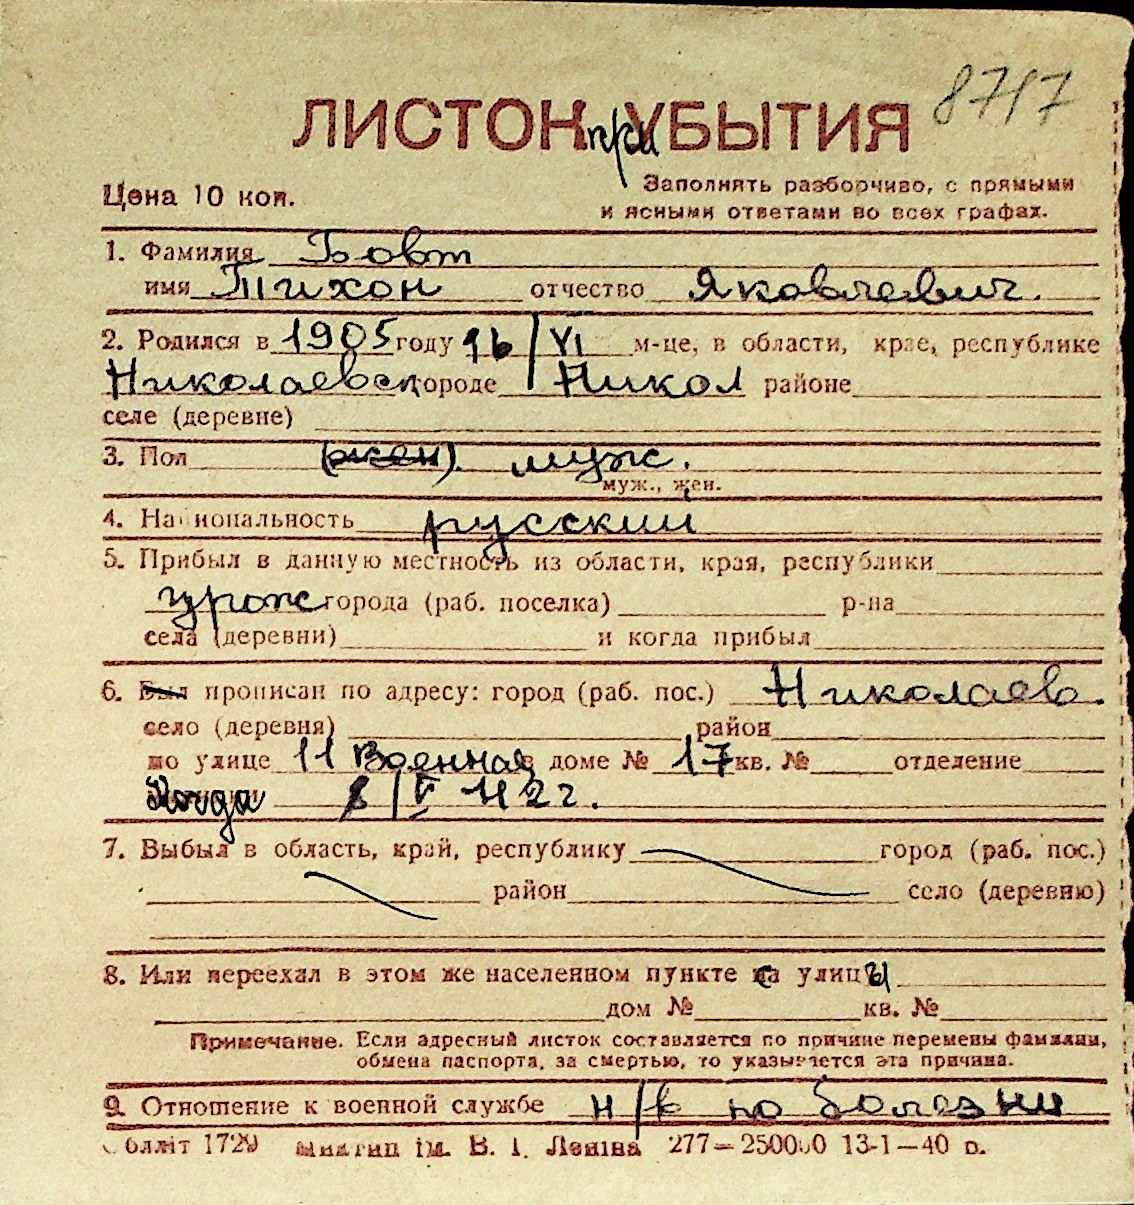 8717
ЛИСТОК при УБЫТИЯ
Цена 10 коп.
Заполнять разборчиво, с прямыми
и ясными ответами во всех графах.
1. Фамилия Бовт
имя Тихон отчество Яковлевич.
2. Родился в 1905 году 16/VI м-це, в области, крае, республике
Николаевск городе Никол районе
селе (деревне)
3. Пол (жен). муж.
муж., жен.
4. Национальность русский
5. Прибыл в данную местность из области, края, республики
урож города (раб. поселка) р-на
села (деревни) и когда прибыл
6. Был прописан по адресу: город (раб. пос.) Николаев.
село (деревня) район
по улице 11 Военная в доме № 17 кв. № отделение
Когда 8/V 42 г.
7. Выбыл в область, край, республику город (раб. пос.)
район село (деревню)
8. Или переехал в этом же населенном пункте с улицы
дом № кв. №
Примечание. Если адресный листок составляется по причине перемены фамилии,
обмена паспорта, за смертью, то указывается эта причина.
9. Отношение к военной службе н/в по болезни
Обллiт 1729 ім. В. І. Леніна 277—250000 13-1—40 р.